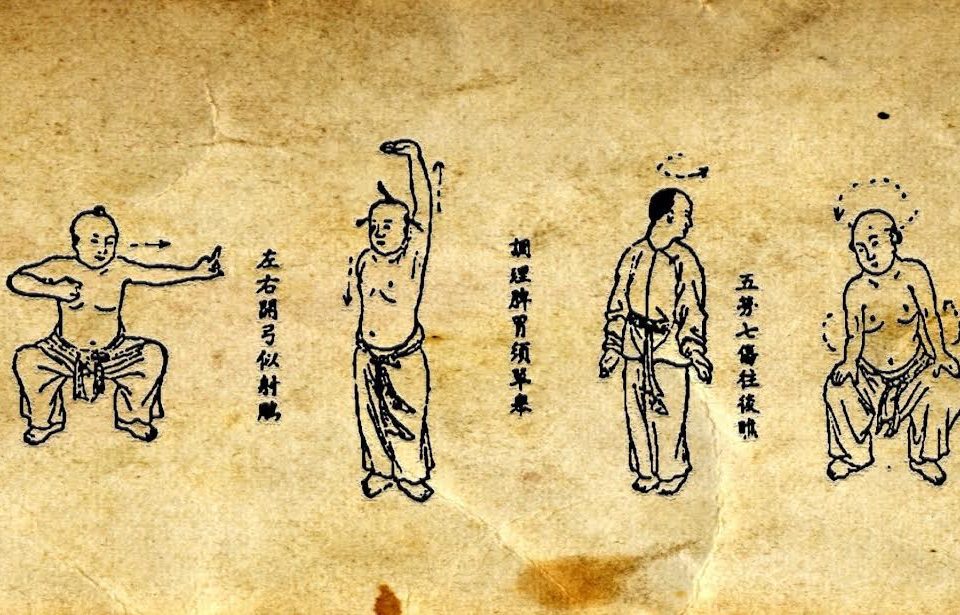 左右開弓似射鵰
調理脾胃須單舉
五勞七傷往後瞧